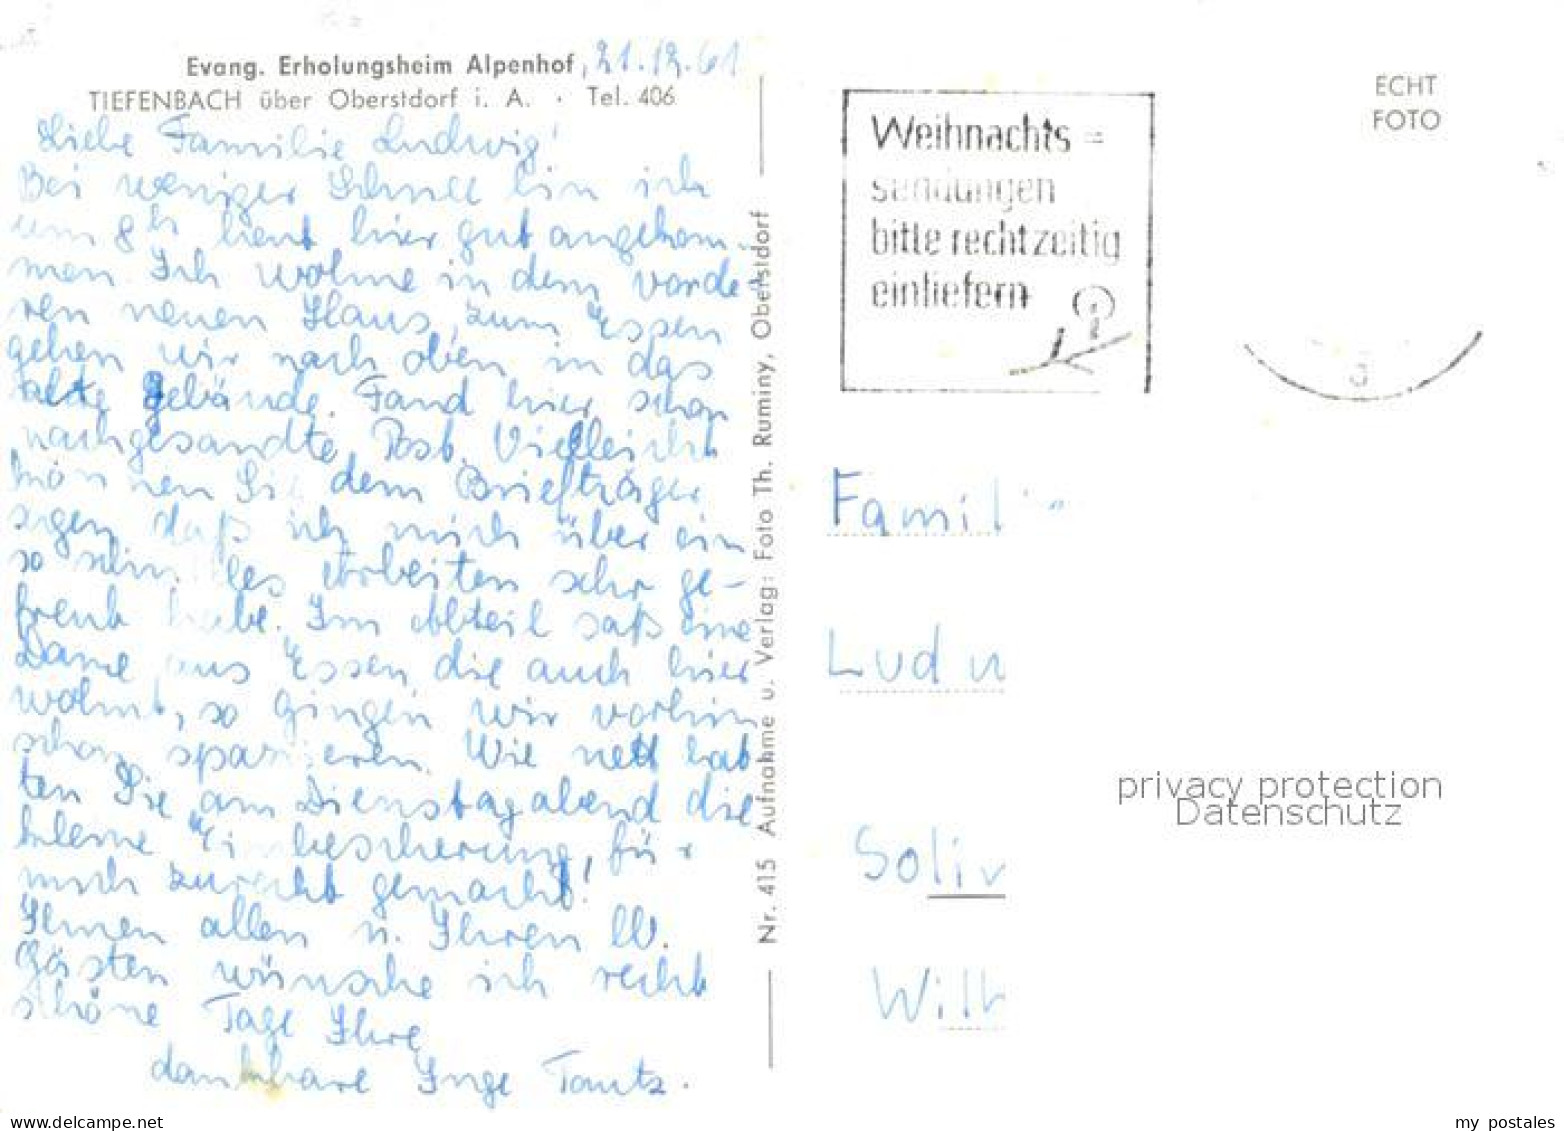 Evang. Erholungsheim Alpenhof, 21.12.61
TIEFENBACH über Oberstdorf i. A. · Tel. 406
Liebe Familie Ludwig!
Bei weniger Schnee bin ich
um 8h heut hier gut angekom-
men. Ich wohne in dem vorde-
ren neuen Haus, zum Essen
gehen wir nach oben in das
alte Gebäude. Fand hier schon
nachgesandte Post. Vielleicht
können Sie dem Briefträger
sagen daß ich mich über ein
so schnelles Arbeiten sehr ge-
freut habe. Im Abteil saß eine
Dame aus Essen die auch hier
wohnt, so gingen wir vorhin
schon spazieren. Wie nett hat
ten Sie am Dienstagabend die
kleine Einbescherung, für
mich zurecht gemacht!
Ihnen allen u. Ihren lb.
Gästen wünsche ich recht
schöne Tage Ihre
dankbare Inge Tautz.
Nr. 415 Aufnahme u. Verlag: Foto Th. Ruminy, Oberstdorf
Weihnachts=
sendungen
bitte rechtzeitig
einliefern
ECHT
FOTO
Famil
Ludw
Soli
Wilh
privacy protection
Datenschutz
www.delcampe.net
my_postales